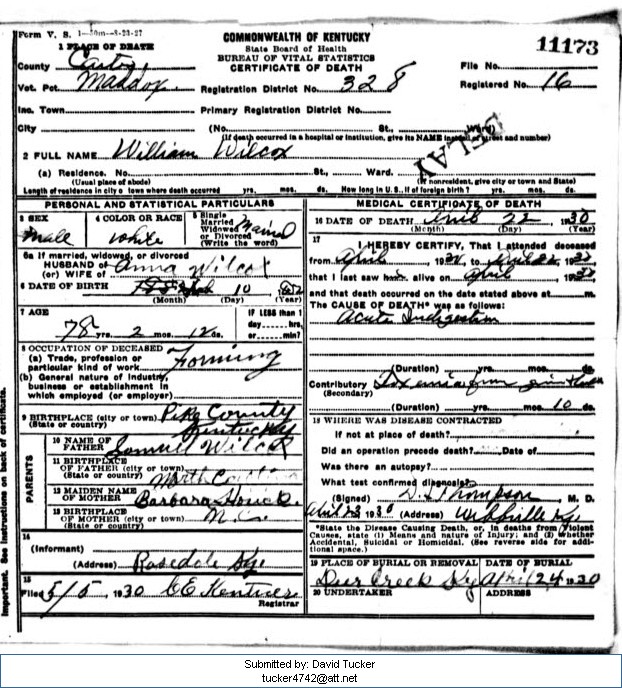 Form V. S. 1-50m-8-23-27
COMMONWEALTH OF KENTUCKY
State Board of Health
BUREAU OF VITAL STATISTICS
CERTIFICATE OF DEATH
11173
1 PLACE OF DEATH
County Carter,
Vot. Pct. Maddox.
Registration District No. 328
File No.
Registered No. 16
Inc. Town
Primary Registration District No.
City (No. St., Ward)
(If death occurred in a hospital or institution, give its NAME instead of street and number)
DELAY
2 FULL NAME William Wilcox
(a) Residence. No. St., Ward.
(Usual place of abode) (If nonresident, give city or town and State)
Length of residence in city or town where death occurred yrs. mos. ds. How long in U. S., if of foreign birth? yrs. mos. ds.
PERSONAL AND STATISTICAL PARTICULARS
3 SEX
Male
4 COLOR OR RACE
White
5 Single
Married
Widowed
or Divorced
(Write the word)
Married
5a If married, widowed, or divorced
HUSBAND OF
(or) WIFE OF Anna Wilcox
6 DATE OF BIRTH 10
(Month) (Day) (Year)
7 AGE
78 yrs. 2 mos. 12 ds.
IF LESS than 1
day hrs.
or min?
8 OCCUPATION OF DECEASED
(a) Trade, profession or
particular kind of work Farming
(b) General nature of industry,
business or establishment in
which employed (or employer)
9 BIRTHPLACE (city or town) Pike County
(State or country) Kentucky
PARENTS
10 NAME OF
FATHER Samuel Wilcox
11 BIRTHPLACE
OF FATHER (city or town)
(State or country) North Carolina
12 MAIDEN NAME
OF MOTHER Barbara
13 BIRTHPLACE
OF MOTHER (city or town)
(State or country) N.C.
14
(Informant)
(Address) Rosedale Ky.
15
Filed 5/5, 1930
Registrar
MEDICAL CERTIFICATE OF DEATH
16 DATE OF DEATH April 22, 1930
(Month) (Day) (Year)
17
I HEREBY CERTIFY, That I attended deceased
from April, 19 to April 22, 19
that I last saw h alive on April, 19
and that death occurred on the date stated above at m.
The CAUSE OF DEATH* was as follows:
Acute Indigestion
(Duration) yrs. mos. ds.
Contributory
(Secondary)
(Duration) yrs. mos. 10 ds.
18 WHERE WAS DISEASE CONTRACTED
If not at place of death?
Did an operation precede death? Date of
Was there an autopsy?
What test confirmed diagnosis?
(Signed) Thompson, M. D.
April 23 1930 (Address) Webbville Ky.
*State the Disease Causing Death, or, in deaths from Violent
Causes, state (1) Means and nature of Injury; and (2) Whether
Accidental, Suicidal or Homicidal. (See reverse side for addi-
tional space.)
19 PLACE OF BURIAL OR REMOVAL DATE OF BURIAL
Deer Creek Ky April 24 1930
20 UNDERTAKER ADDRESS
Important. See instructions on back of certificate.
Submitted by: David Tucker
tucker4742@att.net